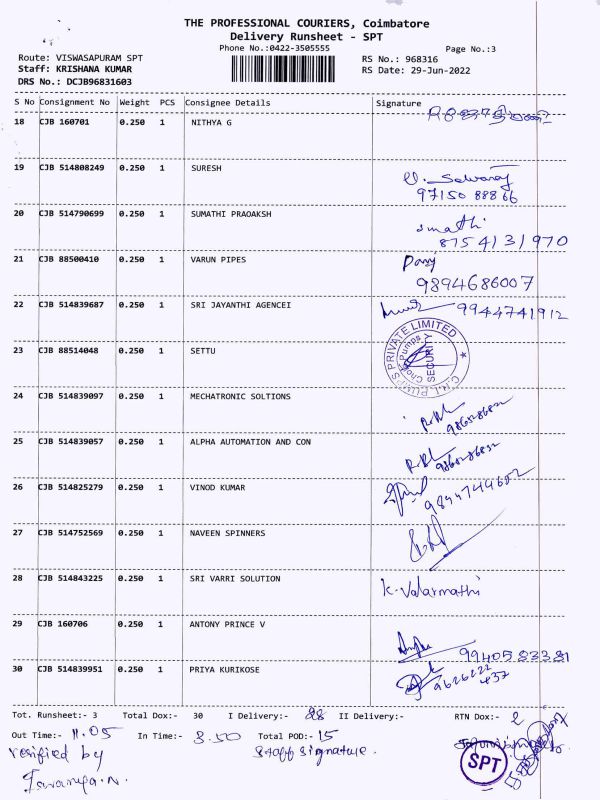 THE PROFESSIONAL COURIERS, Coimbatore
Delivery Runsheet - SPT
Phone No.:0422-3505555
Page No.:3
Route: VISWASAPURAM SPT
RS No.: 968316
Staff: KRISHANA KUMAR
RS Date: 29-Jun-2022
DRS No.: DCJB96831603
S No Consignment No Weight PCS Consignee Details Signature
18 CJB 160701 0.250 1 NITHYA G
19 CJB 514808249 0.250 1 SURESH
97150 88866
20 CJB 514790699 0.250 1 SUMATHI PRAOAKSH
smathi
8754131970
21 CJB 88500410 0.250 1 VARUN PIPES
9894686007
22 CJB 514839687 0.250 1 SRI JAYANTHI AGENCEI
9944741912
23 CJB 88514048 0.250 1 SETTU
C.R.I. PUMPS PRIVATE LIMITED
SECURITY
24 CJB 514839097 0.250 1 MECHATRONIC SOLTIONS
25 CJB 514839057 0.250 1 ALPHA AUTOMATION AND CON
26 CJB 514825279 0.250 1 VINOD KUMAR
27 CJB 514752569 0.250 1 NAVEEN SPINNERS
28 CJB 514843225 0.250 1 SRI VARRI SOLUTION
K. Valarmathi
29 CJB 160706 0.250 1 ANTONY PRINCE V
9940583381
30 CJB 514839951 0.250 1 PRIYA KURIKOSE
Tot. Runsheet:- 3 Total Dox:- 30 I Delivery:- 28 II Delivery:- RTN Dox:- 2
Out Time:- 11.05 In Time:- 3.50 Total POD:- 15
verified by Staff signature.
SPT